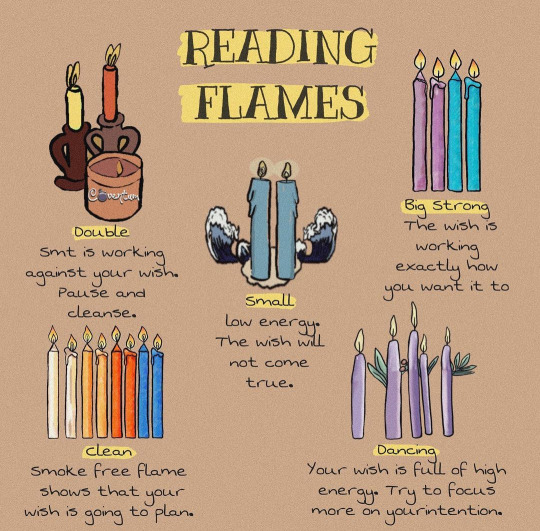 READING
FLAMES
Coventum
Double
Smt is working
against your wish.
Pause and
cleanse.
Big Strong
The wish is
working
exactly how
you want it to
Small
low energy.
The wish will
not come
true.
Clean
Smoke free flame
shows that your
wish is going to plan.
Dancing
Your wish is full of high
energy. Try to focus
more on yourintention.